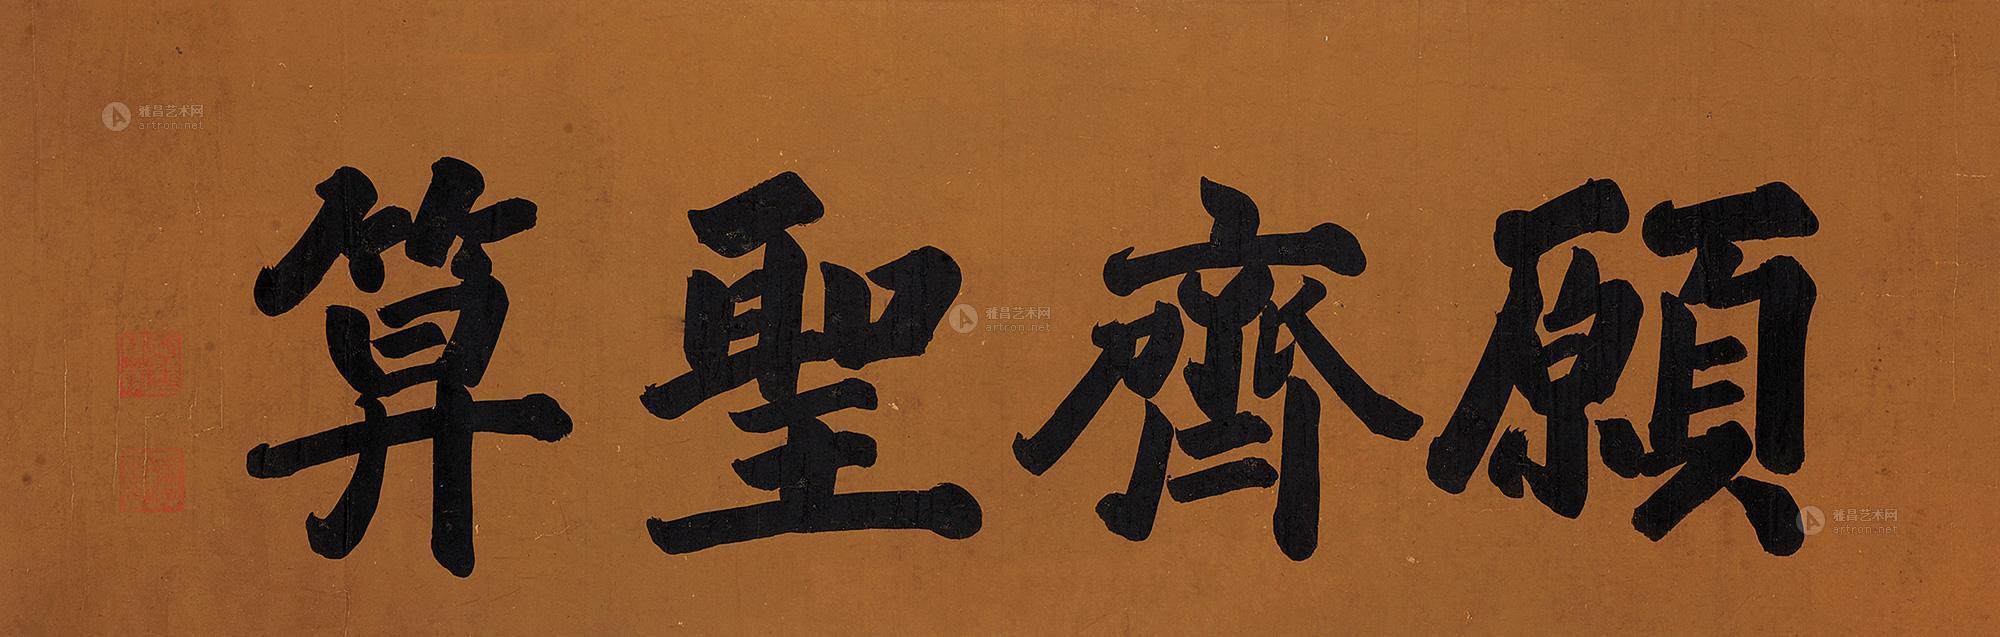 願齊聖算
雅昌艺术网
artron.net
雅昌艺术网
artron.net
雅昌艺术网
artron.net